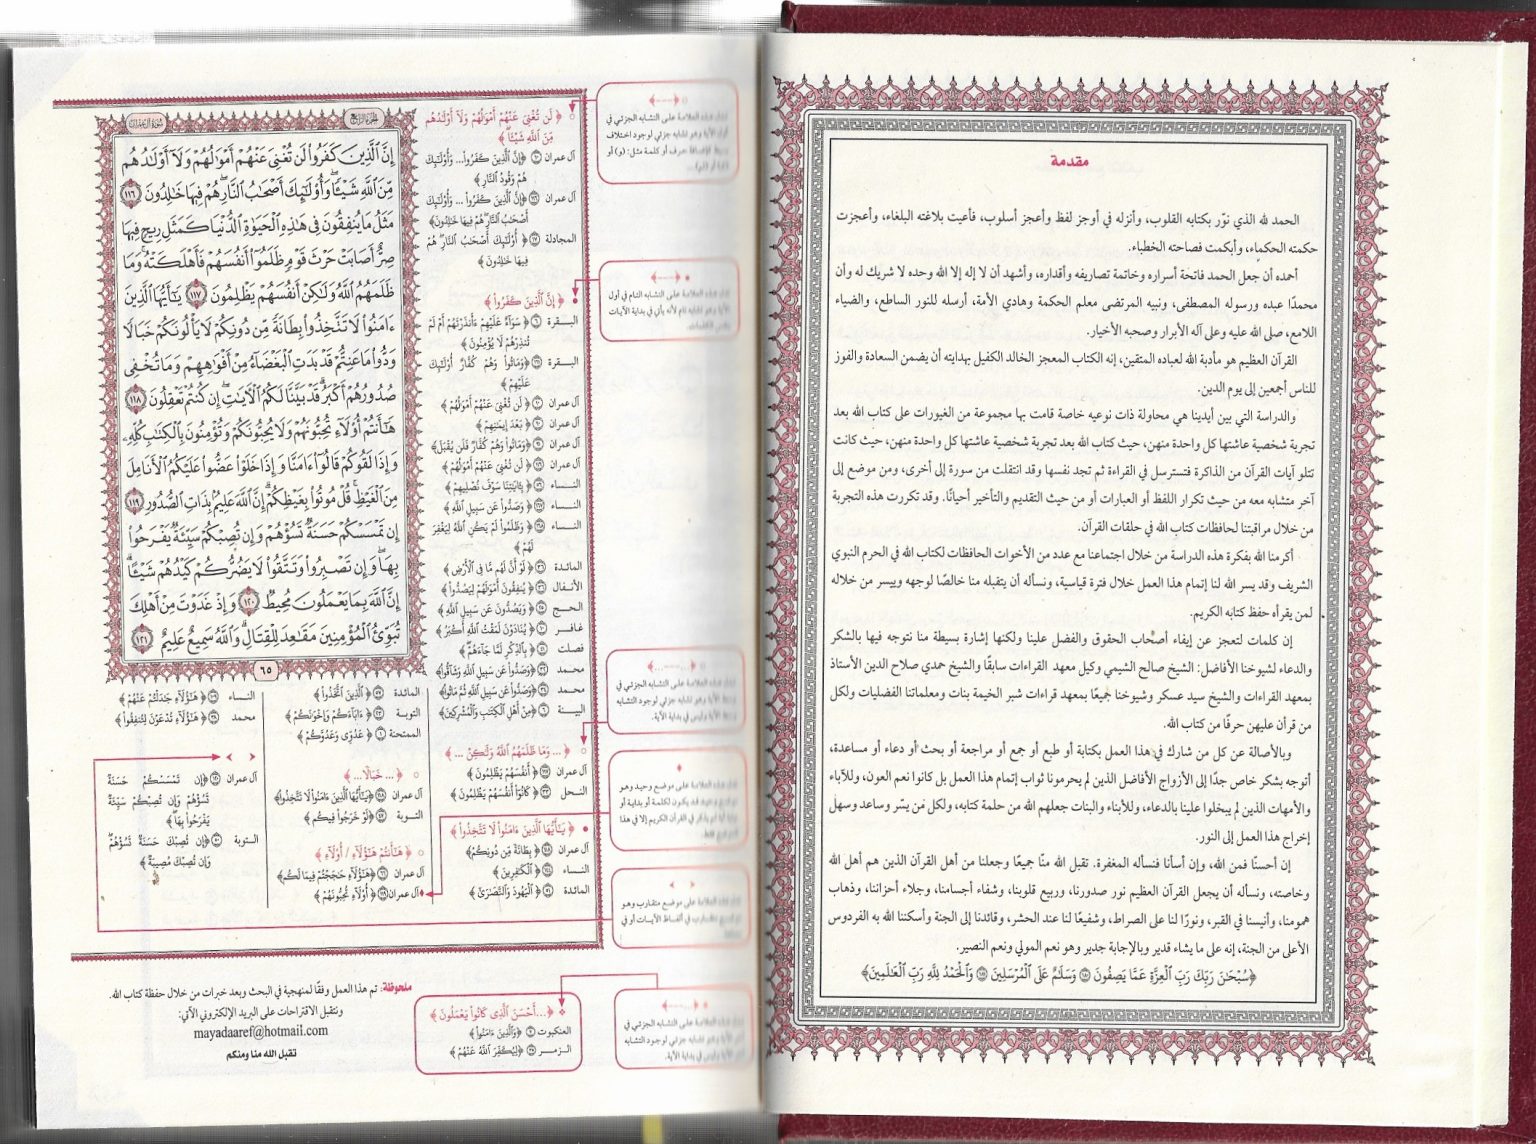 مقدمة
الحمد لله الذي نوّر بكتابه القلوب، وأنزله في أوجز لفظ وأعجز أسلوب، فأعيت بلاغته البلغاء، وأعجزت
حكمته الحكماء، وأبكمت فصاحته الخطباء.
أحمده أن جعل الحمد فاتحة أسراره وخاتمة تصاريفه وأقداره، وأشهد أن لا إله إلا الله وحده لا شريك له وأن
محمدًا عبده ورسوله المصطفى، ونبيه المرتضى معلم الحكمة وهادي الأمة، أرسله للنور الساطع، والضياء
اللامع، صلى الله عليه وعلى آله الأبرار وصحبه الأخيار.
القرآن العظيم هو مأدبة الله لعباده المتقين، إنه الكتاب المعجز الخالد الكفيل بهدايته أن يضمن السعادة والفوز
للناس أجمعين إلى يوم الدين.
والدراسة التي بين أيدينا هي محاولة ذات نوعيه خاصة قامت بها مجموعة من الغيورات على كتاب الله بعد
تجربة شخصية عاشتها كل واحدة منهن، حيث كتاب الله بعد تجربة شخصية عاشتها كل واحدة منهن، حيث كانت
تتلو آيات القرآن من الذاكرة فتسترسل في القراءة ثم تجد نفسها وقد انتقلت من سورة إلى أخرى، ومن موضع إلى
آخر متشابه معه من حيث تكرار اللفظ أو العبارات أو من حيث التقديم والتأخير أحيانًا. وقد تكررت هذه التجربة
من خلال مراقبتنا لحافظات كتاب الله في حلقات القرآن.
أكرمنا الله بفكرة هذه الدراسة من خلال اجتماعنا مع عدد من الأخوات الحافظات لكتاب الله في الحرم النبوي
الشريف وقد يسر الله لنا إتمام هذا العمل خلال فترة قياسية، ونسأله أن يتقبله منا خالصًا لوجهه وييسر من خلاله
لمن يقرأه حفظ كتابه الكريم.
إن كلمات لتعجز عن إيفاء أصحاب الحقوق والفضل علينا ولكنها إشارة بسيطة منا نتوجه فيها بالشكر
والدعاء لشيوخنا الأفاضل: الشيخ صالح الشيمي وكيل معهد القراءات سابقًا والشيخ حمدي صلاح الدين الأستاذ
بمعهد القراءات والشيخ سيد عسكر وشيوخنا جميعًا بمعهد قراءات شبر الخيمة بنات ومعلماتنا الفضليات ولكل
من قرأن عليهن حرفًا من كتاب الله.
وبالأصالة عن كل من شارك في هذا العمل بكتابة أو طبع أو جمع أو مراجعة أو بحث أو دعاء أو مساعدة،
أتوجه بشكر خاص جدًا إلى الأزواج الأفاضل الذين لم يحرمونا ثواب إتمام هذا العمل بل كانوا نعم العون، وللآباء
والأمهات الذين لم يبخلوا علينا بالدعاء، وللأبناء والبنات جعلهم الله من حلمة كتابه، ولكل من يسّر وساعد وسهل
إخراج هذا العمل إلى النور.
إن أحسنّا فمن الله، وإن أسأنا فنسأله المغفرة. تقبل الله منّا جميعًا وجعلنا من أهل القرآن الذين هم أهل الله
وخاصته، ونسأله أن يجعل القرآن العظيم نور صدورنا، وربيع قلوبنا، وشفاء أجسامنا، وجلاء أحزاننا، وذهاب
همومنا، وأنيسنا في القبر، ونورًا لنا على الصراط، وشفيعًا لنا عند الحشر، وقائدنا إلى الجنة وأسكننا الله به الفردوس
الأعلى من الجنة، إنه على ما يشاء قدير وبالإجابة جدير وهو نعم المولي ونعم النصير.
﴿سُبْحَٰنَ رَبِّكَ رَبِّ ٱلْعِزَّةِ عَمَّا يَصِفُونَ ۝ وَسَلَٰمٌ عَلَى ٱلْمُرْسَلِينَ ۝ وَٱلْحَمْدُ لِلَّهِ رَبِّ ٱلْعَٰلَمِينَ﴾
﴿ لَن تُغْنِىَ عَنْهُمْ أَمْوَٰلُهُمْ وَلَآ أَوْلَٰدُهُم
مِّنَ ٱللَّهِ شَيْـًٔا ﴾
آل عمران ١٠ ﴿إِنَّ ٱلَّذِينَ كَفَرُوا۟... وَأُو۟لَٰٓئِكَ
هُمْ وَقُودُ ٱلنَّارِ ﴾
آل عمران ١١٦ ﴿إِنَّ ٱلَّذِينَ كَفَرُوا۟ ... وَأُو۟لَٰٓئِكَ
أَصْحَٰبُ ٱلنَّارِ هُمْ فِيهَا خَٰلِدُونَ﴾
المجادلة ١٧ ﴿ أُو۟لَٰٓئِكَ أَصْحَٰبُ ٱلنَّارِ هُمْ
فِيهَا خَٰلِدُونَ ﴾
﴿ إِنَّ ٱلَّذِينَ كَفَرُوا۟ ﴾
البـقـرة ٦ ﴿ سَوَآءٌ عَلَيْهِمْ ءَأَنذَرْتَهُمْ أَمْ لَمْ
تُنذِرْهُمْ لَا يُؤْمِنُونَ ﴾
البـقـرة ١٦١ ﴿وَمَاتُوا۟ وَهُمْ كُفَّارٌ أُو۟لَٰٓئِكَ
عَلَيْهِمْ ﴾
آل عمران ١٠ ﴿ لَن تُغْنِىَ عَنْهُمْ أَمْوَٰلُهُمْ ﴾
آل عمران ٩٠ ﴿ بَعْدَ إِيمَٰنِهِمْ ﴾
آل عمران ٩١ ﴿وَمَاتُوا۟ وَهُمْ كُفَّارٌ فَلَن يُقْبَلَ﴾
آل عمران ١١٦ ﴿ لَن تُغْنِىَ عَنْهُمْ أَمْوَٰلُهُمْ ﴾
النـسـاء ٥٦ ﴿ بِـَٔايَٰتِنَا سَوْفَ نُصْلِيهِمْ ﴾
النـسـاء ١٦٧ ﴿ وَصَدُّوا۟ عَن سَبِيلِ ٱللَّهِ ﴾
النـسـاء ١٦٨ ﴿ وَظَلَمُوا۟ لَمْ يَكُنِ ٱللَّهُ لِيَغْفِرَ
لَهُمْ ﴾
المـائـدة ٣٦ ﴿ لَوْ أَنَّ لَهُم مَّا فِى ٱلْأَرْضِ ﴾
الأنـفـال ٣٦ ﴿ يُنفِقُونَ أَمْوَٰلَهُمْ لِيَصُدُّوا۟ ﴾
الحـج ٢٥ ﴿ وَيَصُدُّونَ عَن سَبِيلِ ٱللَّهِ ﴾
غـافـر ١٠ ﴿ يُنَادَوْنَ لَمَقْتُ ٱللَّهِ أَكْبَرُ ﴾
فصلت ٤١ ﴿ بِٱلذِّكْرِ لَمَّا جَآءَهُمْ ﴾
محـمـد ٣٢ ﴿وَصَدُّوا۟ عَن سَبِيلِ ٱللَّهِ وَشَآقُّوا۟﴾
محـمـد ٣٤ ﴿وَصَدُّوا۟ عَن سَبِيلِ ٱللَّهِ ثُمَّ مَاتُوا۟﴾
البينة ٦ ﴿مِنْ أَهْلِ ٱلْكِتَٰبِ وَٱلْمُشْرِكِينَ﴾
﴿ ... وَمَا ظَلَمَهُمُ ٱللَّهُ وَلَٰكِنْ ... ﴾
آل عمران ١١٧ ﴿ أَنفُسَهُمْ يَظْلِمُونَ ﴾
النـحـل ٣٣ ﴿ كَانُوٓا۟ أَنفُسَهُمْ يَظْلِمُونَ ﴾
﴿ يَٰٓأَيُّهَا ٱلَّذِينَ ءَامَنُوا۟ لَا تَتَّخِذُوا۟ ﴾
آل عمران ١١٨ ﴿ بِطَانَةً مِّن دُونِكُمْ﴾
النـسـاء ١٤٤ ﴿ ٱلْكَٰفِرِينَ ﴾
المائدة ٥١ ﴿ ٱلْيَهُودَ وَٱلنَّصَٰرَىٰٓ ﴾
سورة آل عمران
الجزء الرابع
إِنَّ ٱلَّذِينَ كَفَرُوا۟ لَن تُغْنِىَ عَنْهُمْ أَمْوَٰلُهُمْ وَلَآ أَوْلَٰدُهُم
مِّنَ ٱللَّهِ شَيْـًٔا وَأُو۟لَٰٓئِكَ أَصْحَٰبُ ٱلنَّارِ هُمْ فِيهَا خَٰلِدُونَ ١١٦
مَثَلُ مَا يُنفِقُونَ فِى هَٰذِهِ ٱلْحَيَوٰةِ ٱلدُّنْيَا كَمَثَلِ رِيحٍ فِيهَا
صِرٌّ أَصَابَتْ حَرْثَ قَوْمٍ ظَلَمُوٓا۟ أَنفُسَهُمْ فَأَهْلَكَتْهُ وَمَا
ظَلَمَهُمُ ٱللَّهُ وَلَٰكِنْ أَنفُسَهُمْ يَظْلِمُونَ ١١٧ يَٰٓأَيُّهَا ٱلَّذِينَ
ءَامَنُوا۟ لَا تَتَّخِذُوا۟ بِطَانَةً مِّن دُونِكُمْ لَا يَأْلُونَكُمْ خَبَالًا
وَدُّوا۟ مَا عَنِتُّمْ قَدْ بَدَتِ ٱلْبَغْضَآءُ مِنْ أَفْوَٰهِهِمْ وَمَا تُخْفِى
صُدُورُهُمْ أَكْبَرُ قَدْ بَيَّنَّا لَكُمُ ٱلْـَٔايَٰتِ إِن كُنتُمْ تَعْقِلُونَ ١١٨
هَٰٓأَنتُمْ أُو۟لَآءِ تُحِبُّونَهُمْ وَلَا يُحِبُّونَكُمْ وَتُؤْمِنُونَ بِٱلْكِتَٰبِ كُلِّهِۦ
وَإِذَا لَقُوكُمْ قَالُوٓا۟ ءَامَنَّا وَإِذَا خَلَوْا۟ عَضُّوا۟ عَلَيْكُمُ ٱلْأَنَامِلَ
مِنَ ٱلْغَيْظِ قُلْ مُوتُوا۟ بِغَيْظِكُمْ إِنَّ ٱللَّهَ عَلِيمٌۢ بِذَاتِ ٱلصُّدُورِ ١١٩
إِن تَمْسَسْكُمْ حَسَنَةٌ تَسُؤْهُمْ وَإِن تُصِبْكُمْ سَيِّئَةٌ يَفْرَحُوا۟
بِهَا وَإِن تَصْبِرُوا۟ وَتَتَّقُوا۟ لَا يَضُرُّكُمْ كَيْدُهُمْ شَيْـًٔا
إِنَّ ٱللَّهَ بِمَا يَعْمَلُونَ مُحِيطٌ ١٢٠ وَإِذْ غَدَوْتَ مِنْ أَهْلِكَ
تُبَوِّئُ ٱلْمُؤْمِنِينَ مَقَٰعِدَ لِلْقِتَالِ وَٱللَّهُ سَمِيعٌ عَلِيمٌ ١٢١
٦٥
المائدة ٥٧ ﴿ ٱلَّذِينَ ٱتَّخَذُوا۟ ﴾
التوبة ٢٣ ﴿ ءَابَآءَكُمْ وَإِخْوَٰنَكُمْ ﴾
الممتحنة ١ ﴿ عَدُوِّى وَعَدُوَّكُمْ ﴾
﴿ ... خَبَالًا... ﴾
آل عمران ١١٨ ﴿يَٰٓأَيُّهَا ٱلَّذِينَ ءَامَنُوا۟ لَا تَتَّخِذُوا۟﴾
التـوبة ٤٧ ﴿لَوْ خَرَجُوا۟ فِيكُم ﴾
﴿ هَٰٓأَنتُمْ هَٰٓؤُلَآءِ / أُو۟لَآءِ ﴾
آل عمران ٦٦ ﴿هَٰٓؤُلَآءِ حَٰجَجْتُمْ فِيمَا لَكُم﴾
آل عمران ١١٩ ﴿ أُو۟لَآءِ تُحِبُّونَهُمْ ﴾
النـسـاء ١٠٩ ﴿ هَٰٓؤُلَآءِ جَٰدَلْتُمْ عَنْهُمْ ﴾
محمد ٣٨ ﴿ هَٰٓؤُلَآءِ تُدْعَوْنَ لِتُنفِقُوا۟ ﴾
آل عمران ١٢٠ ﴿إِن تَمْسَسْكُمْ حَسَنَةٌ
تَسُؤْهُمْ وَإِن تُصِبْكُمْ سَيِّئَةٌ
يَفْرَحُوا۟ بِهَا ﴾
التوبة ٥٠ ﴿إِن تُصِبْكَ حَسَنَةٌ تَسُؤْهُمْ
وَإِن تُصِبْكَ مُصِيبَةٌ ﴾
﴿ ...أَحْسَنَ ٱلَّذِى كَانُوا۟ يَعْمَلُونَ ﴾
العنكبوت ٧ ﴿وَٱلَّذِينَ ءَامَنُوا۟ ﴾
الزمـر ٣٥ ﴿لِيُكَفِّرَ ٱللَّهُ عَنْهُمْ ﴾
ملحوظة: تم هذا العمل وفقًا لمنهجية في البحث وبعد خبرات من خلال حفظة كتاب الله.
ونتقبل الاقتراحات على البريد الإلكتروني الآتي:
mayadaaref@hotmail.com
تقبل الله منا ومنكم